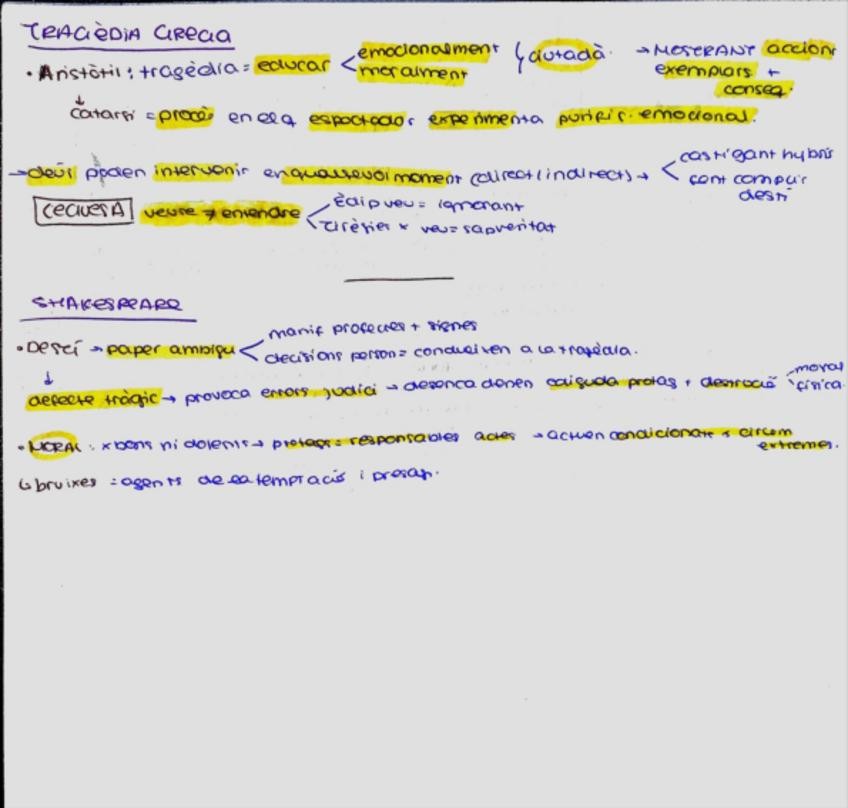 TRAGÈDIA GREGA
• Aristòtil: tragèdia = educar < emocionalment moralment } ciutadà. → MOSTRANT accions exemplars + conseq.
↓
catarsi = procés en el q espectador experimenta purific. emocional.
→ deus poden intervenir en qualsevol moment (direct/indirect) → < castigant hybris fent complir destí
CEGUESA veure ≠ entendre < Èdip veu = ignorant
Tirèsies x veu = sap veritat
SHAKESPEARE
• Destí → paper ambigu < manif profecies + signes
decisions person = condueixen a la tragèdia.
↓
defecte tràgic → provoca errors judici → desencadenen caiguda protag + destrucció moral física
• MORAL: x bons ni dolents → protags = responsables actes → actuen condicionats x circum extremes.
↳ bruixes = agents de la temptació i presag.